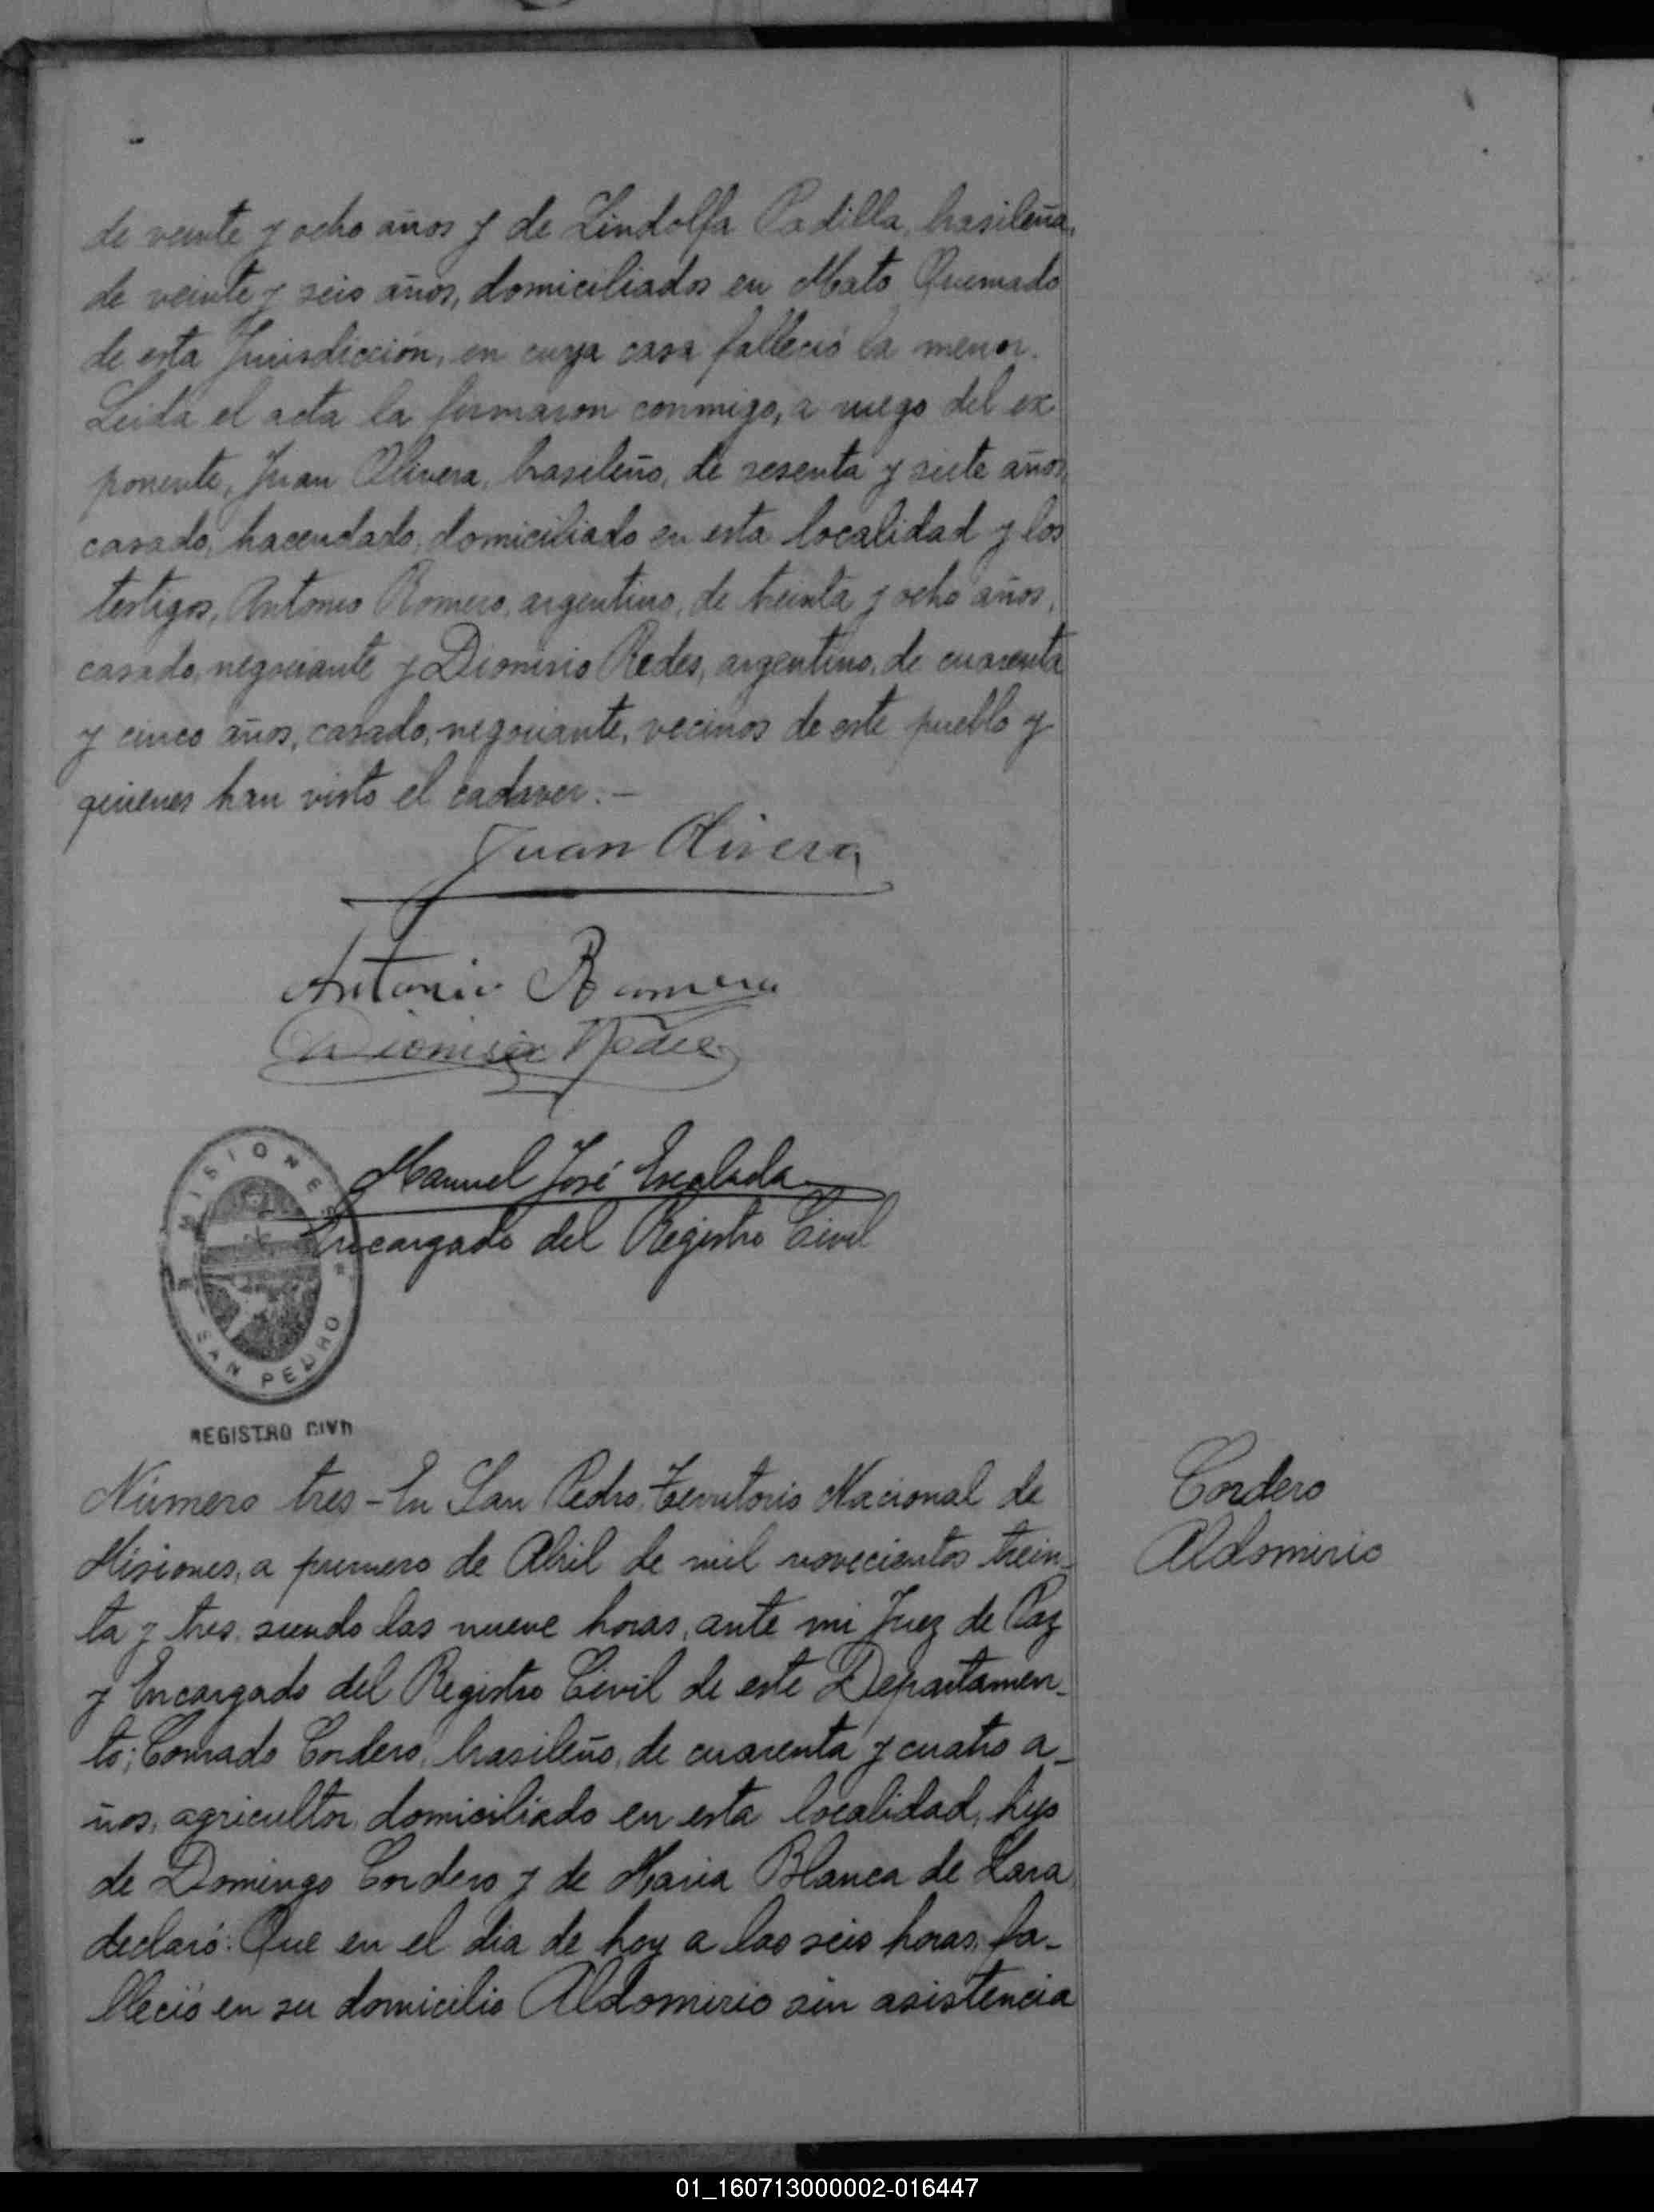 de veinte y ocho años y de Lindolfa Padilla, brasileña,
de veinte y seis años, domiciliados en Mato Quemado
de esta Jurisdicción, en cuya casa falleció la menor.
Leida el acta la firmaron conmigo, a ruego del ex
ponente, Juan Olivera, brasileño, de sesenta y siete años,
casado, hacendado, domiciliado en esta localidad y los
testigos, Antonio Romero, argentino, de treinta y ocho años,
casado, negociante y Dionisio Redes, argentino, de cuarenta
y cinco años, casado, negociante, vecinos de este pueblo y
quienes han visto el cadaver.—
Juan Olivera
Antonio Romero
Dionisio Redes
Manuel José Escalada
Encargado del Registro Civil
MISIONES
SAN PEDRO
REGISTRO CIVIL
Número tres - En San Pedro, Territorio Nacional de
Misiones, a primero de Abril de mil novecientos trein-
ta y tres, siendo las nueve horas, ante mi Juez de Paz
y Encargado del Registro Civil de este Departamen-
to; Conrado Cordero, brasileño, de cuarenta y cuatro a-
ños, agricultor, domiciliado en esta localidad, hijo
de Domingo Cordero y de Maria Blanca de Lara,
declaró: Que en el dia de hoy a las seis horas, fa-
lleció en su domicilio Aldomirio sin asistencia
Cordero
Aldomirio
01_160713000002-016447